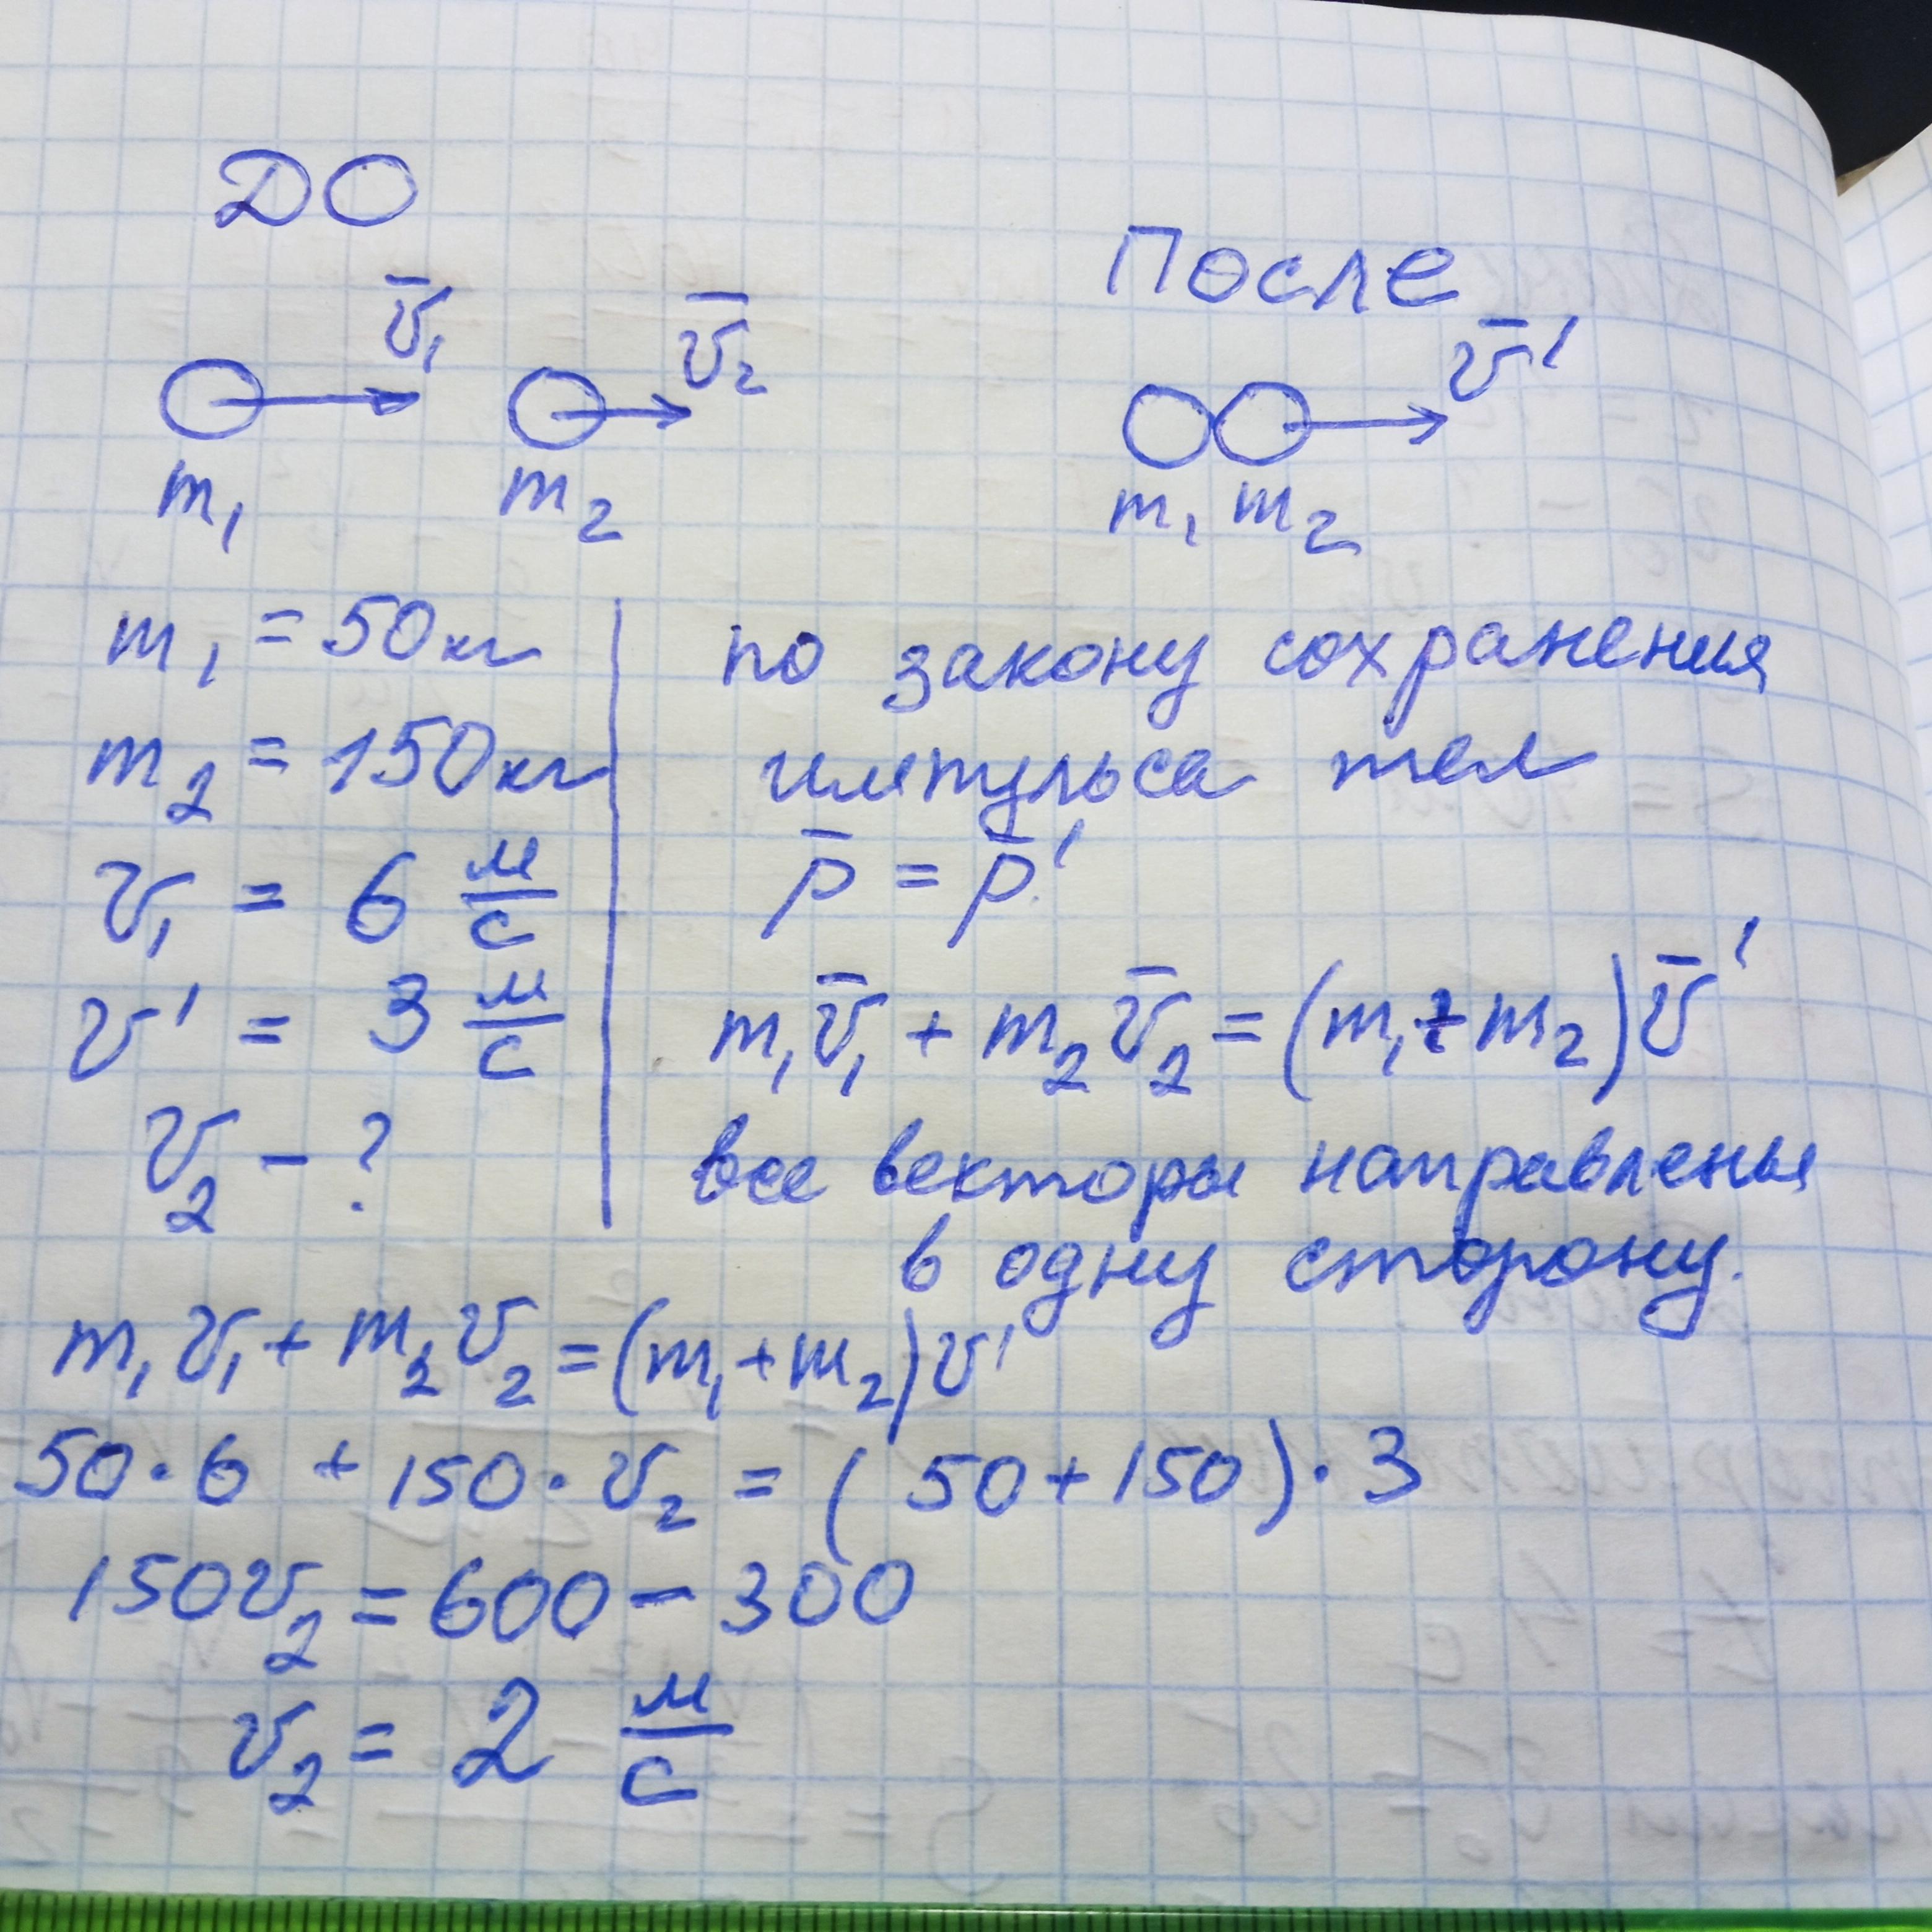 ДО
После
v̄₁
v̄₂
v̄'
m₁ m₂
m₁ m₂
m₁ = 50кг
m₂ = 150кг
v₁ = 6 м/с
v' = 3 м/с
v₂ - ?
по закону сохранения
импульса тел
p̄ = p̄'
m₁v̄₁ + m₂v̄₂ = (m₁ + m₂)v̄'
все векторы направлены
в одну сторону.
m₁v₁ + m₂v₂ = (m₁ + m₂)v'
50·6 + 150·v₂ = (50 + 150)·3
150v₂ = 600 - 300
v₂ = 2 м/с